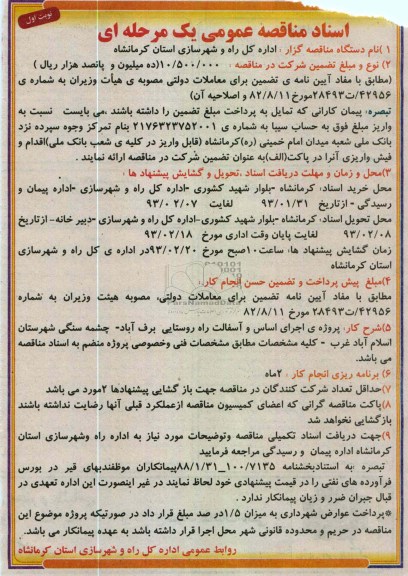 نوبت اول
اسناد مناقصه عمومی یک مرحله ای
۱ )نام دستگاه مناقصه گزار : اداره کل راه و شهرسازی استان کرمانشاه
۲) نوع و مبلغ تضمین شرکت در مناقصه : ۱۰/۵۰۰/۰۰۰(ده میلیون و پانصد هزار ریال )
(مطابق با مفاد آیین نامه ی تضمین برای معاملات دولتی مصوبه ی هیأت وزیران به شماره ی
۴۲۹۵۶/ت۲۸۴۹۳مورخ۸۲/۸/۱۱ و اصلاحیه آن)
تبصره: پیمان کارانی که تمایل به پرداخت مبلغ تضمین را داشته باشند .می بایست نسبت به
واریز مبلغ فوق به حساب سیبا به شماره ی ۲۱۷۶۳۲۳۷۵۲۰۰۱ بنام تمرکز وجوه سپرده نزد
بانک ملی شعبه میدان امام خمینی (ره)کرمانشاه (قابل واریز در کلیه ی شعب بانک ملی)اقدام و
فیش واریزی آنرا در پاکت(الف)به عنوان تضمین شرکت در مناقصه ارائه نمایند .
۳)محل و زمان و مهلت دریافت اسناد ،تحویل و گشایش پیشنهاد ها :
محل خرید اسناد: کرمانشاه -بلوار شهید کشوری -اداره کل راه و شهرسازی -اداره پیمان و
رسیدگی - ازتاریخ ۹۳/۰۱/۳۱ لغایت ۹۳/۰۲/۰۷
محل تحویل اسناد: کرمانشاه -بلوار شهید کشوری-اداره کل راه و شهرسازی -دبیر خانه- ازتاریخ
۹۳/۰۲/۰۸ لغایت پایان وقت اداری مورخ ۹۳/۰۲/۱۸
زمان گشایش پیشنهاد ها: ساعت۱۰صبح مورخ ۹۳/۰۲/۲۰در اداره ی کل راه و شهرسازی
استان کرمانشاه
۴)مبلغ پیش پرداخت و تضمین حسن انجام کار:
مطابق با مفاد آیین نامه تضمین برای معاملات دولتی، مصوبه هیئت وزیران به شماره
۴۲۹۵۶/ت۲۸۴۹۳ مورخ ۸۲/۸/۱۱
۵)شرح کار: پروژه ی اجرای اساس و آسفالت راه روستایی برف آباد- چشمه سنگی شهرستان
اسلام آباد غرب - کلیه مشخصات مطابق مشخصات فنی وخصوصی پروژه منضم به اسناد مناقصه
می باشد.
۶) برنامه ریزی انجام کار : ۲ماه
۷)حداقل تعداد شرکت کنندگان در مناقصه جهت باز گشایی پیشنهادها ۲مورد می باشد
۸)پاکت مناقصه گرانی که اعضای کمیسیون مناقصه ازعملکرد قبلی آنها رضایت نداشته باشند
بازگشایی نخواهد شد
۹)جهت دریافت اسناد تکمیلی مناقصه وتوضیحات مورد نیاز به اداره راه وشهرسازی استان
کرمانشاه اداره پیمان و رسیدگی مراجعه فرمایید
تبصره :به استنادبخشنامه ۱۰۰/۷۱۳۵_۸۸/۱/۳۱پیمانکاران موظفندبهای قیر در بورس
فرآورده های نفتی را در قیمت پیشنهادی خود لحاظ نمایند در غیر اینصورت این اداره تعهدی در
قبال جبران ضرر و زیان پیمانکار ندارد .
*پرداخت عوارض شهرداری به میزان ۱/۵در صد مبلغ قرار داد در صورتیکه پروژه موضوع این
مناقصه در حریم و محدوده قانونی شهر محل اجرا قرار داشته باشد به عهده پیمانکار می باشد.
روابط عمومی اداره کل راه و شهرسازی استان کرمانشاه